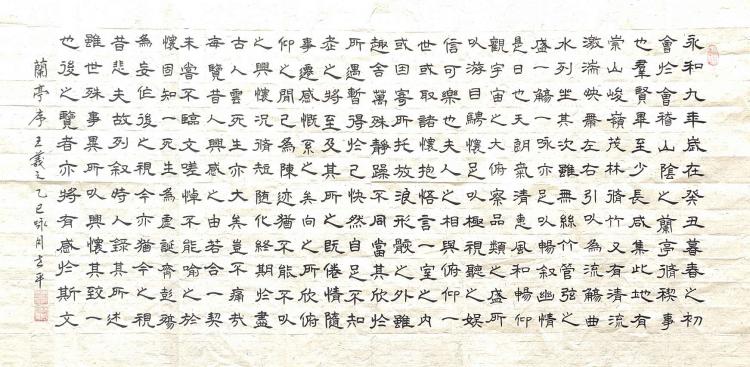 永和九年歲在癸丑暮春之初
會於會稽山陰之蘭亭脩稧事
也羣賢畢至少長咸集此地有
崇山峻嶺茂林脩竹又有清流
激湍映帶左右引以為流觴曲
水列坐其次雖無絲竹管弦之
盛一觴一詠亦足以暢叙幽情
是日也天朗氣清惠風和暢仰
觀宇宙之大俯察品類之盛所
以游目騁懷足以極視聽之娛
信可樂也夫人之相與俯仰一
世或取諸懷抱悟言一室之內
或因寄所托放浪形骸之外雖
趣舍萬殊靜躁不同當其欣於
所遇暫得於己快然自足不知
老之將至及其所之既倦情隨
事遷感慨系之矣向之所欣俯
仰之間已為陳迹猶不能不以
之興懷況脩短隨化終期於盡
古人雲死生亦大矣豈不痛哉
每覽昔人興感之由若合一契
未嘗不臨文嗟悼不能喻之於
懷固知一死生為虛誕齊彭殤
為妄作後之視今亦猶今之視
昔悲夫故列叙時人錄其所述
雖世殊事異所以興懷其致一
也後之覽者亦將有感於斯文
蘭亭序王羲之乙巳咏月